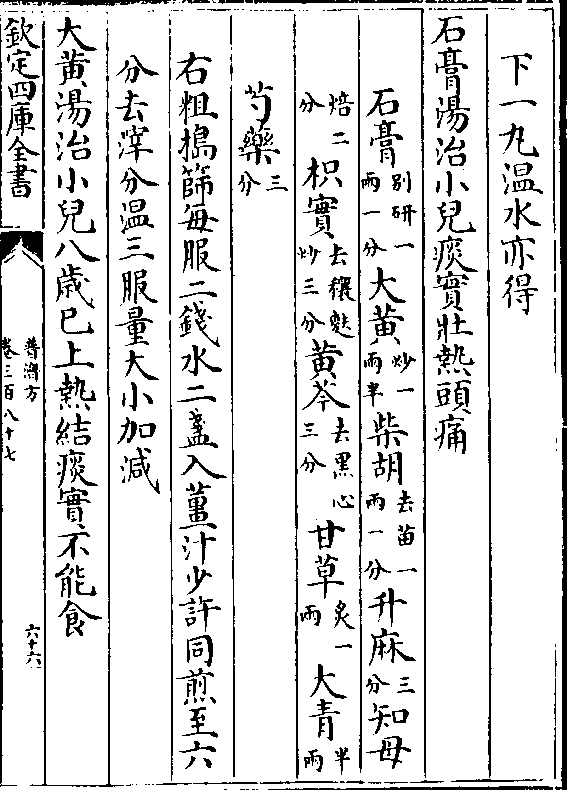 下一丸温水亦得
石膏湯治小兒痰實壯熱頭痛
石膏别研一兩一分大黄炒一兩半柴胡去苗一兩一分升麻三分知母
焙二分枳實去穰麩炒三分黄芩去黒心三分甘草炙一兩大青半兩
芍藥三分
右粗搗篩每服二錢水二盞入薑汁少許同煎至六
分去滓分温三服量大小加減
大黄湯治小兒八歳已上熱結痰實不能食
欽定四庫全書
普濟方
卷三百八十七
六十六